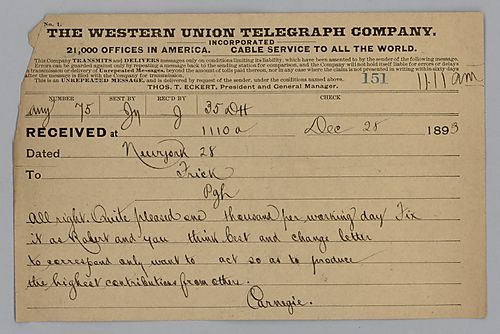 No. 1.
THE WESTERN UNION TELEGRAPH COMPANY.
INCORPORATED
21,000 OFFICES IN AMERICA. CABLE SERVICE TO ALL THE WORLD.
This Company TRANSMITS and DELIVERS messages only on conditions limiting its liability, which have been assented to by the sender of the following message.
Errors can be guarded against only by repeating a message back to the sending station for comparison, and the Company will not hold itself liable for errors or delays
in transmission or delivery of Unrepeated Messages, beyond the amount of tolls paid thereon, nor in any case where the claim is not presented in writing within sixty days
after the message is filed with the Company for transmission.
This is an UNREPEATED MESSAGE, and is delivered by request of the sender, under the conditions named above.
151 11:11 am
THOS. T. ECKERT, President and General Manager.
NUMBER SENT BY REC'D BY CHECK
75 J 35 DH
RECEIVED at 1110 a Dec 28 1893
Dated Newyork 28
To Frick
Pgh
All right. Quite pleased one thousand per working day Fix
it as Robert and you think best and change letter
to correspond only want to act so as to produce
the highest contributions from others.
Carnegie.